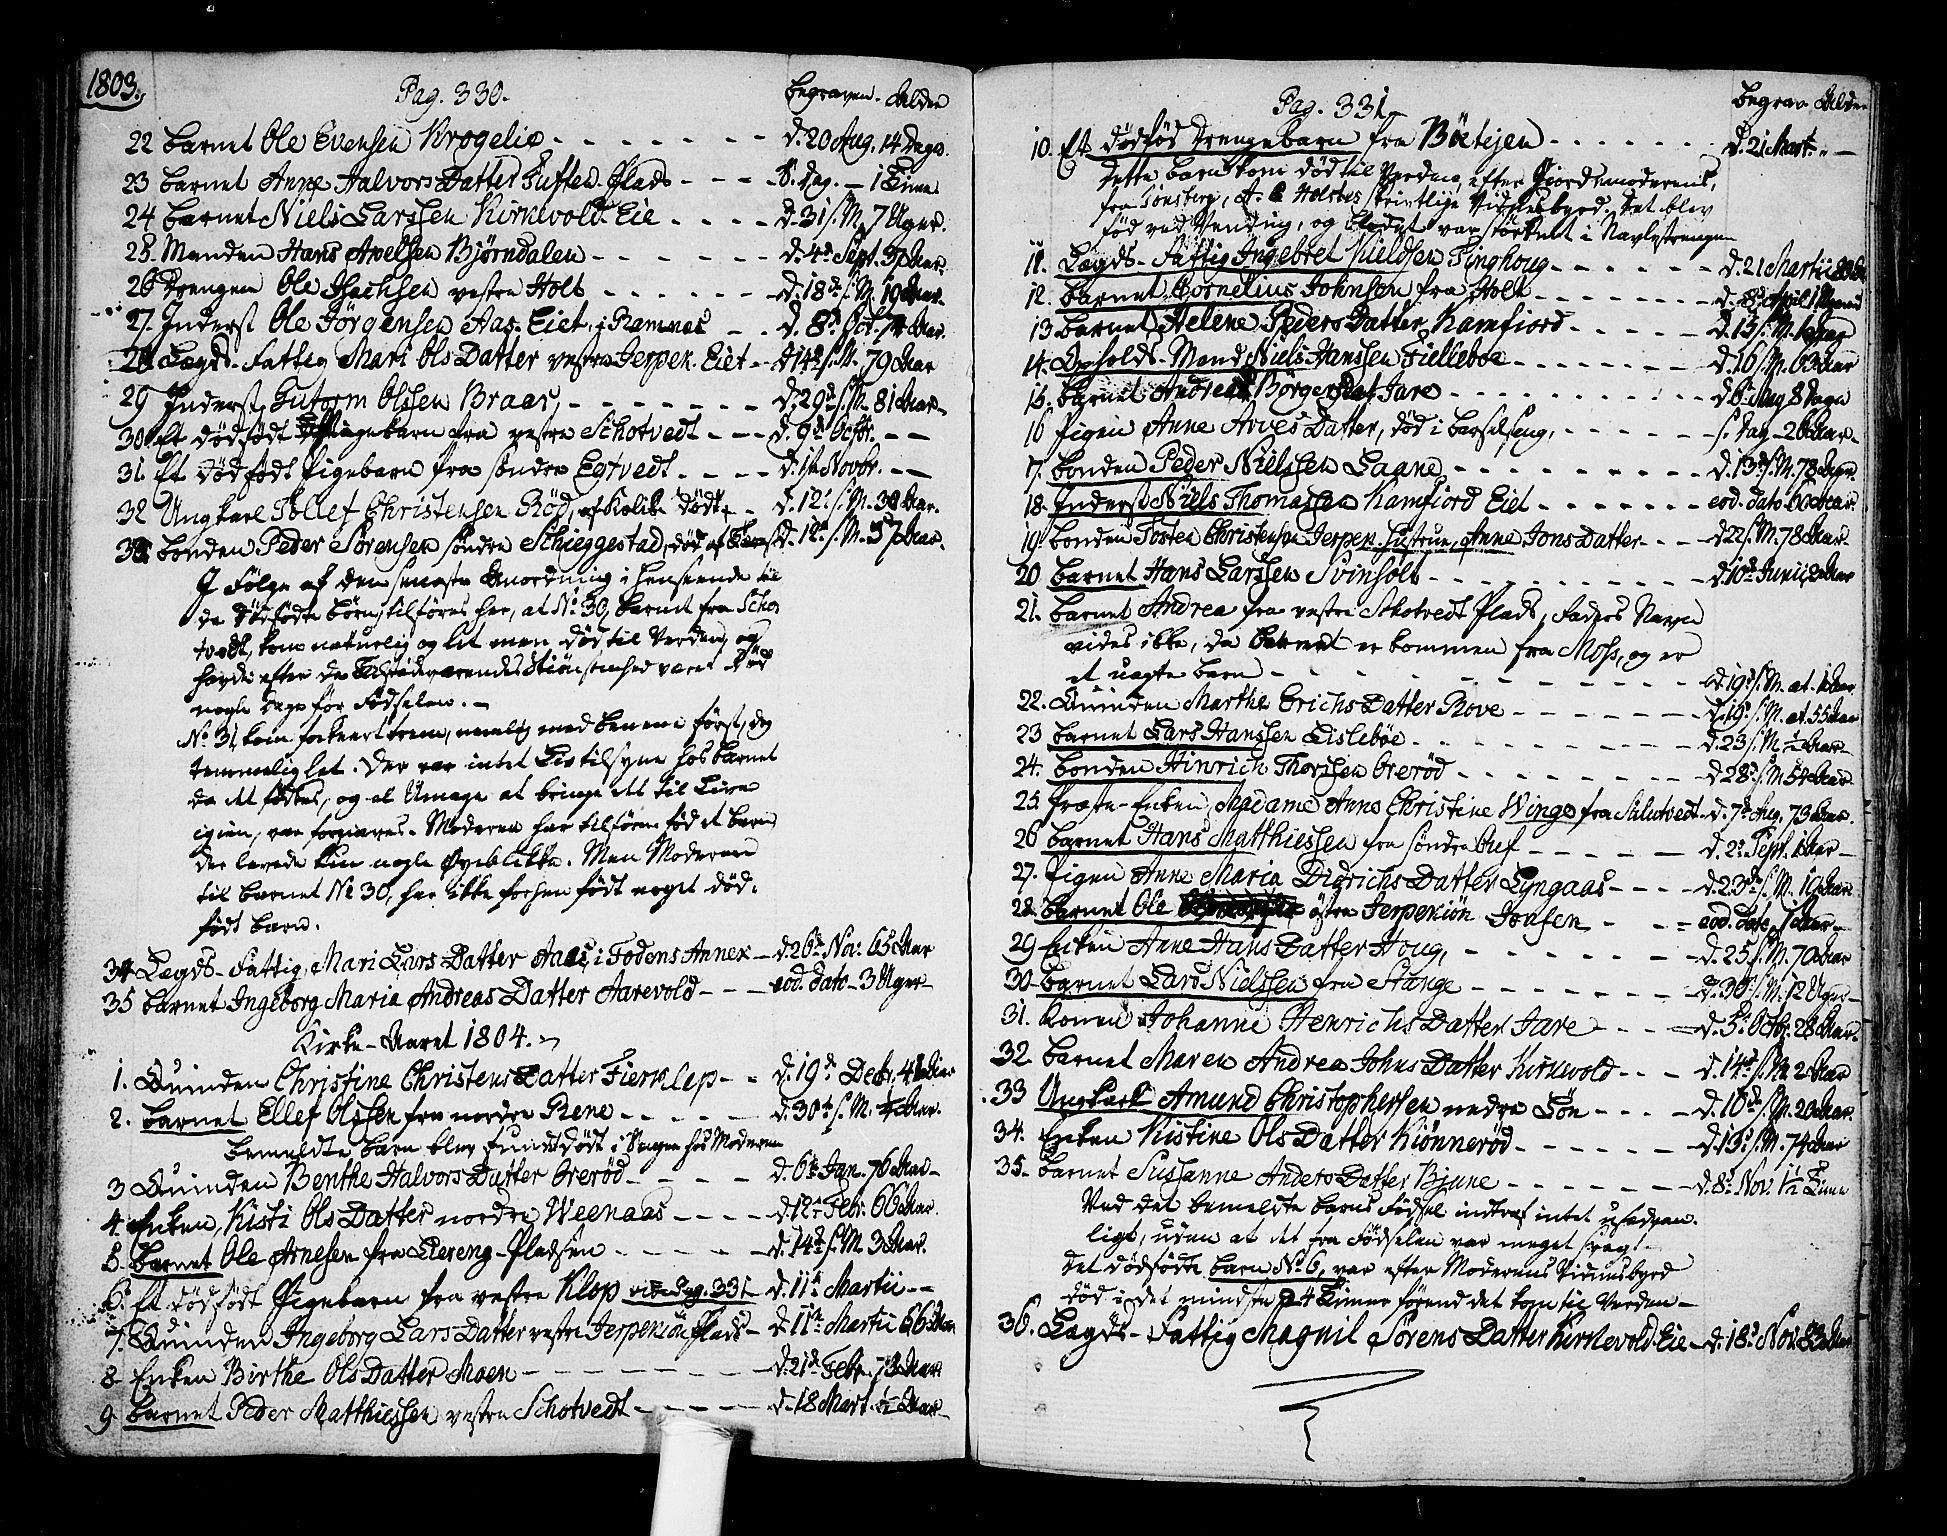 1803.
Pag. 330.
Begraven. Alder
22 Barnet Ole Evensen Krogelie - - - - - - - d. 20 Aug. 14 Dage.
23 Barnet Anne Halvors Datter Tuften Plads - - - S. Dag. - 1 Time
24 Barnet Niels Larssen Kirkevold Eie - - - - d. 31 s. M. 7 Uger.
25 Manden Hans Axelsen Bjørndalen - - - - - - d. 4de Sept. Aar.
26 Drengen Ole Isachsen vestre Holt - - - - - - d. 18de s. M. 19 Aar.
27. Inderst Ole Jørgensen Aas-Eiet, i Ramnes - - d. 8de Oct. Aar.
28 Lægds-Fattig Mari Ols Datter vestre Jerpen-Eiet - d. 14de s. M. 79 Aar
29 Inderst, Gutorm Olssen Braar, - - - - - - - d. 29de s. M. 81 Aar-
30 Et dødfødt barn fra vestre Schotvedt - - - d. 9de Octbr. - -
31. Et dødfødt Pigebarn fra søndre Egtvedt - - - - d. Novbr. - -
32 Ungkarl Tollef Christensen Rød, af Kolik død - d. 12te s. M. 38 Aar.
33 Bonden Peder Sørensen søndre Schieggestad, død af d. s. M. 57 Aar.
I Følge af den seneste Anordning i Henseende til
de dødfødte børn tilføres her, at No. 30, barnet fra Scho
tvedt, kom naturlig og let men død til Verden, og
havde efter de Tilstædeværendes Skiønsomhed været død
nogle dage før Fødselen. -
No. 31 kom forkeert frem, nemlig med benene først, dog
temmelig let. Der var intet Liv tilsyne hos barnet
da det fødtes, og al Umage at bringe det til Live
igien, var forgieves. Moderen har tilforn fød et barn
der levede kun nogle Øyeblikke. Men Moderen
til barnet No 30, har ikke forhen født noget død-
født barn.
34 Lægds-Fattig, Mari Lars Datter Aas, i Fodens Annex - d. 26de Nov. 65 Aar
35 Barnet Ingeborg Maria Andreas Datter Aarevold - - - eod. dato - 3 Uger-
Kirke-Aaret 1804.
1. Quinden Christine Christens Datter Fierklep - - d. 19de Decbr. Aar
2. Barnet Ellef Olssen fra nordre Rene - - - - - d. 30te s. M. Aar.
bemeldte barn blev fundet dødt i Sengen hos Moderen
3 Quinden Benthe Halvors Datter Orerød - - - - d. 6te Jan. 76 Aar-
4. Enken, Kisti Ols Datter nordre Weenaas - - - - d. 12te Febr. 66 Aar.
5. Barnet Ole Arnesen fra Liereng-Pladsen - - - - - d. 14de s. M. 3 Aar.
6. Et dødfødt Pigebarn fra vestre Klop vide Pag. 331 - d. 11te Martii - -
7. Quinden Ingeborg Lars Datter vestre Jerpekiøn Plads - d. 11te Martii 66 Aar
8 Enken Birthe Ols Datter Moen - - - - - - - d. 21de Febr. 73 Aar
9 Barnet Peder Matthiessen vestre Schotvedt - - - - - d. 18 Mart. ½ Aar-
Pag. 331
Begrav. Alder
10. Et dødfød Drengebarn fra Böetejen - - - - - - - d. 21 Mart. - -
Dette barn kom død til Verden, efter Jordemoderens,
fra Tønsberg, A. C. Holstes skriftlige Vidnesbyrd. Det blev
fød ved Vending, og blodet var størknet i Navlestrengen
11. Lægds-Fattig Ingebret Kieldsen Tinghoug - - - - - - d. 21 Martii
12. Barnet Cornelius Johnsen fra Holt - - - - - - - d. 8de April
13 Barnet Helene Peders Datter Kamfiord - - - - - d. 15 s. M. Dag
14. Opholds-Mand Niels Hanssen Fielleboe - - - - - - - d. 16 s. M. 63 Aar
15. Barnet Andreas Börgers Dat. Jare - - - - - - - - d. 6te Aug 8 Dage
16 Pigen Anne Arves Datter, død i barselseng, - - - - - s. Dag - 26 Aar-
17. Bonden Peder Nielssen Laane - - - - - - - - d. 13de s. M. 78 Aar.
18. Inderst Niels Thomassen Kamfiord Eiet - - - - - - eod. dato Aar.
19. Bonden Tosten Christensen Jerpen. Hustrue, Anne Jons Datter - - d. 22 s. M. 78 Aar.
20 Barnet Hans Larssen Svinholt - - - - - - - - - d. 10de Junii, 2 Aar
21. Barnet Andrea fra vestre Schotvedt Plads, Faders Navn
vides ikke, da barnet er kommen fra Moss, og er
et uægte barn - - - - - - - - - - d. 19de s. M. at. 1 Aar
22. Quinden Marthe Erichs Datter Rove - - - - - - d. 19de s. M. at. 55 Aar
23 Barnet Lars Hanssen Eisleböe - - - - - - - - - d. 23 s. M. ½ Aar-
24. Bonden Hinrich Thorssen Orerød - - - - - - - d. 28de s. M. 54 Aar
25 Præste-Enken, Madame Anne Christine Winge fra Sklutvedt - d. 7de Aug. 73 Aar.
26 Barnet Hans Matthiessen fra søndre Auf - - - - - d. 2de Sept. 1 Aar-
27. Pigen Anne Maria Didrichs Datter Lyngaas - - - - d. 23de s. M. 10 Aar
28. Barnet Ole østre Jerpekiøn Jonsen - - - eod. dato, 1 Aar-
29 Enken Anne Hans Datter Houg, - - - - - - - d. 25 s. M. 70 Aar
30. Barnet Lars Nielssen fra Stange - - - - - - - d. 30te s. M. 12 Uger-
31. Konen Johanne Henrichs Datter Jare - - - - d. 5te Octbr. 28 Aar.
32 Barnet Maren Andrea Johns Datter Kirkevold - - - d. 14de s. M. 2 Aar
33 Ungkarl Amund Christophersen nedre Løn - - - - d. 16de s. M. 20 Aar.
34. Enken Kistine Ols Datter Kiønnerød - - - - - - d. 13de s. M. 74 Aar
35. Barnet Sussanne Anders Datter Bjune - - - - - - d. 8de Nov. 1½ Time
Ved det bemeldte barns Fødsel indtraf intet usædvan-
ligt, uden at det fra Fødselen var meget svagt -
Det dødfødte barn No. 6, var efter Moderens Vidnesbyrd
død i det mindste 24 Timer førend det kom til Verden -
36. Lægds-Fattig Magnil Sørens Datter Kirkevold-Eie - d. 18de Nov. 83 Aar